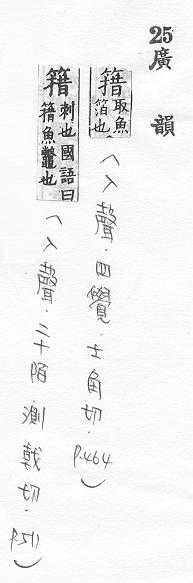 25
廣韻
籍取魚箔也
(入聲.四覺.士角切.P.464)
籍刺也國語曰籍魚鼈也
(入聲.二十陌.測戟切.P.511)